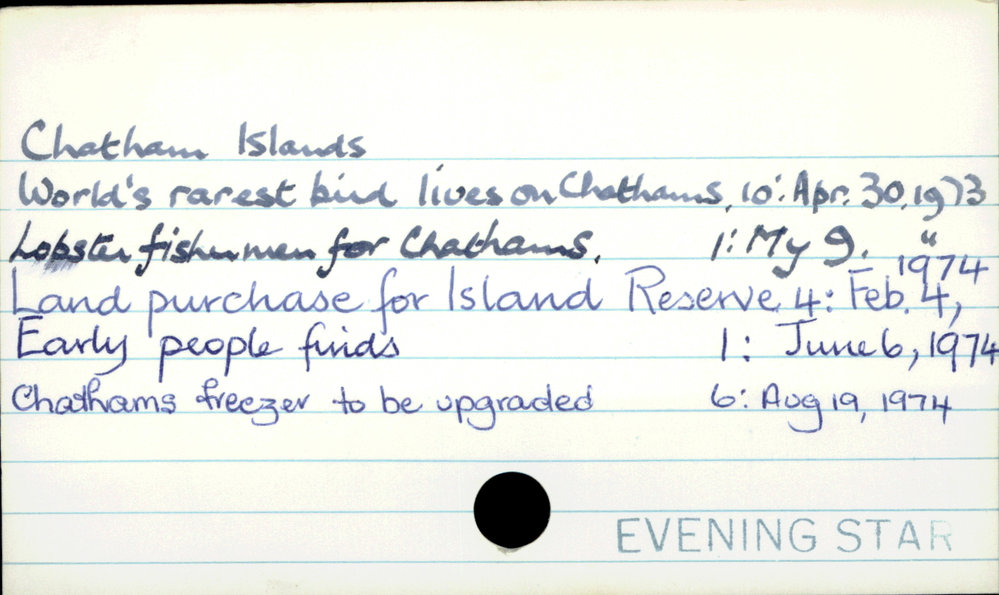 Chatham Islands
World's rarest bird lives on Chathams, 10: Apr. 30, 1973
Lobster fishermen for Chathams. 1: My 9. "
Land purchase for Island Reserve 4: Feb. 4, 1974
Early people finds 1: June 6, 1974
Chathams freezer to be upgraded 6: Aug 19, 1974
EVENING STAR